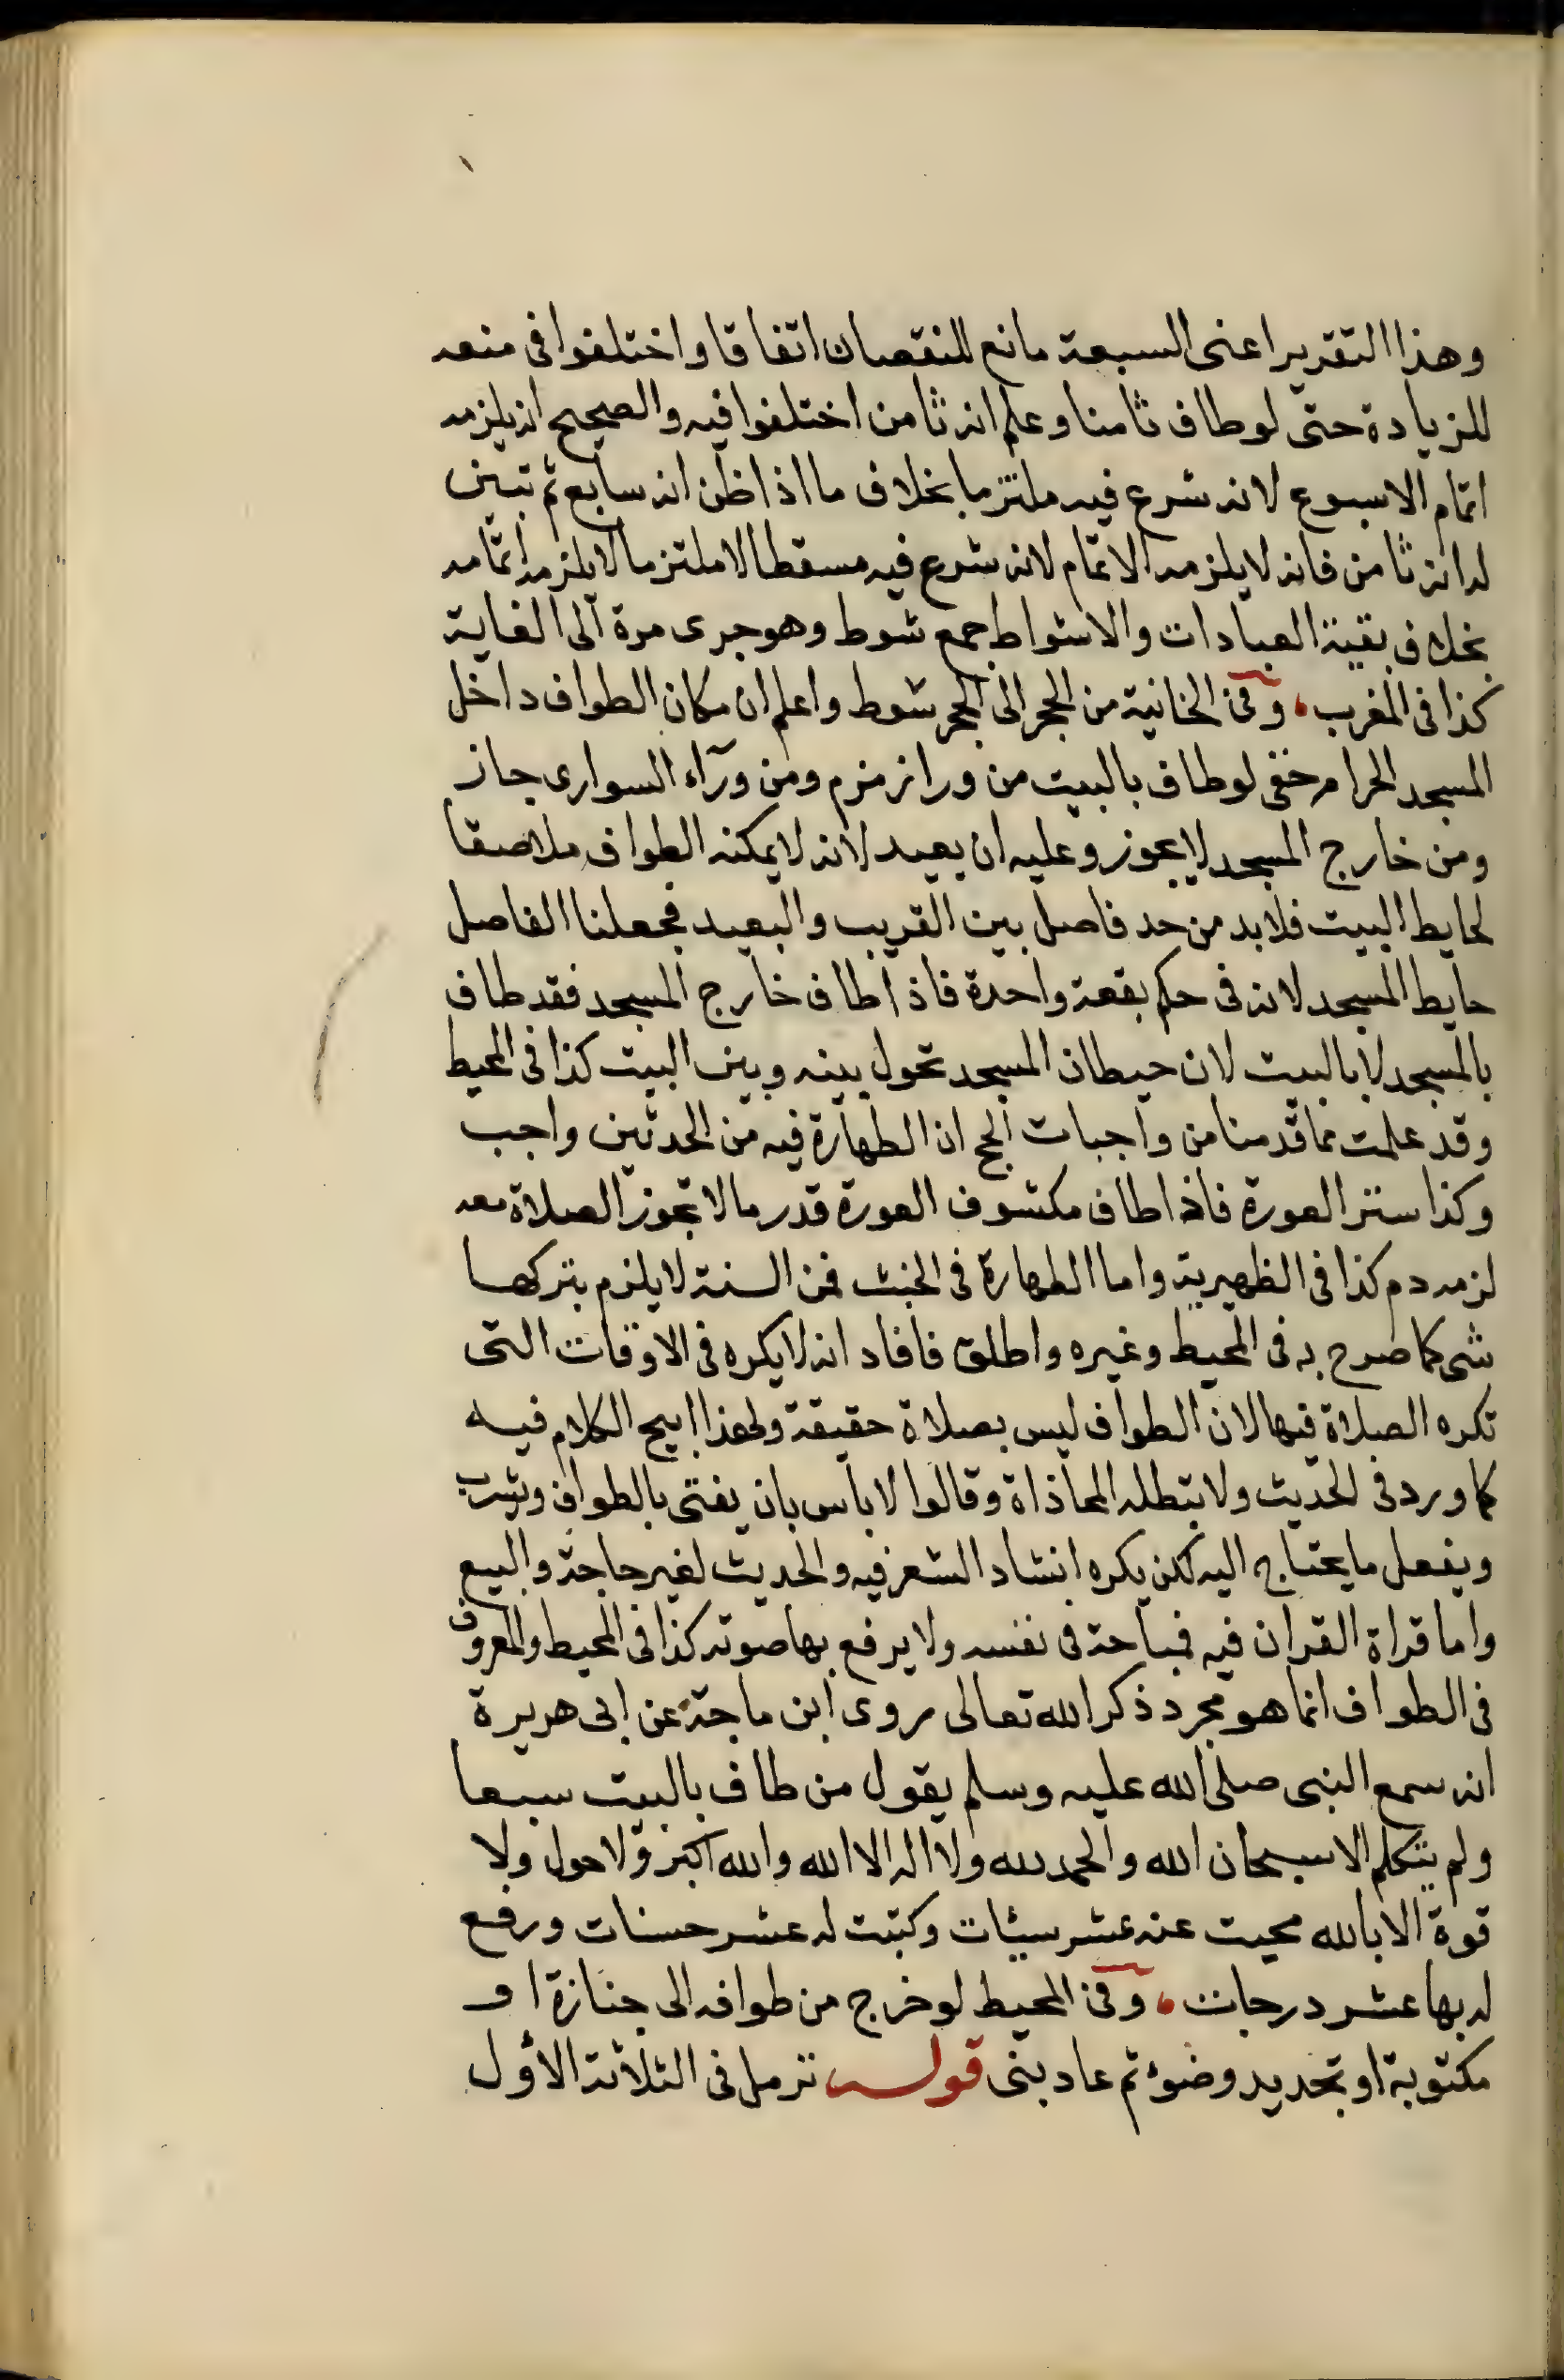 وهذا التقرير اعنى السبعة مانع للنقصان اتفاقا واختلفوا فى منعه
للزيادة حتى لو طاف ثامنا وعلم انه ثامن اختلفوا فيه والصحيح انه يلزمه
اتمام الاسبوع لانه شرع فيه ملتزما بخلاف ما اذا ظن انه سابع ثم تبين
له انه ثامن فانه لا يلزمه الاتمام لانه شرع فيه مسقطا لا ملتزما لا يلزمه اتمامه
بخلاف بقية العبادات والاشواط جمع شوط وهو جرى مرة الى الغاية
كذا فى المغرب، وفى الخانية من الحجر الى الحجر شوط واعلم ان مكان الطواف داخل
المسجد الحرام حتى لو طاف بالبيت من ورا زمزم ومن ورآء السوارى جاز
ومن خارج المسجد لا يجوز وعليه ان يعيد لانه لا يمكنه الطواف ملاصقا
لحايط البيت فلا بد من حد فاصل بين القريب والبعيد فجعلنا الفاصل
حايط المسجد لانه فى حكم بقعة واحدة فاذا طاف خارج المسجد فقد طاف
بالمسجد لا بالبيت لان حيطان المسجد تحول بينه وبين البيت كذا فى المحيط
وقد علمت مما قدمنا من واجبات الحج ان الطهارة فيه من الحدثين واجب
وكذا ستر العورة فاذا طاف مكشوف العورة قدر ما لا تجوز الصلاة معه
لزمه دم كذا فى الظهيرية واما الطهارة فى الخبث فمن السنة لا يلزم بتركها
شى كما صرح به فى المحيط وغيره واطلق فافاد انه لا يكره فى الاوقات التى
تكره الصلاة فيها لان الطواف ليس بصلاة حقيقة ولهذا ابيح الكلام فيه
كما ورد فى الحديث ولا تبطله المحاذاة وقالوا لا باس بان يفتى بالطواف ويشرب
ويفعل ما يحتاج اليه لكن يكره انشاد الشعر فيه والحديث لغير حاجة والبيع
واما قراة القران فيه فمباحة فى نفسه ولا يرفع بها صوته كذا فى المحيط والمعروف
فى الطواف انما هو مجرد ذكر الله تعالى روى ابن ماجة عن ابى هريرة
انه سمع النبى صلى الله عليه وسلم يقول من طاف بالبيت سبعا
ولم يتكلم الا سبحان الله والحمد لله ولا اله الا الله والله اكبر ولا حول ولا
قوة الا بالله محيت عنه عشر سيئات وكتبت له عشر حسنات ورفع
له بها عشر درجات، وفى المحيط لو خرج من طوافه الى جنازة او
مكتوبة او تجديد وضوء ثم عاد بنى قوله ترمل فى الثلاثة الأول